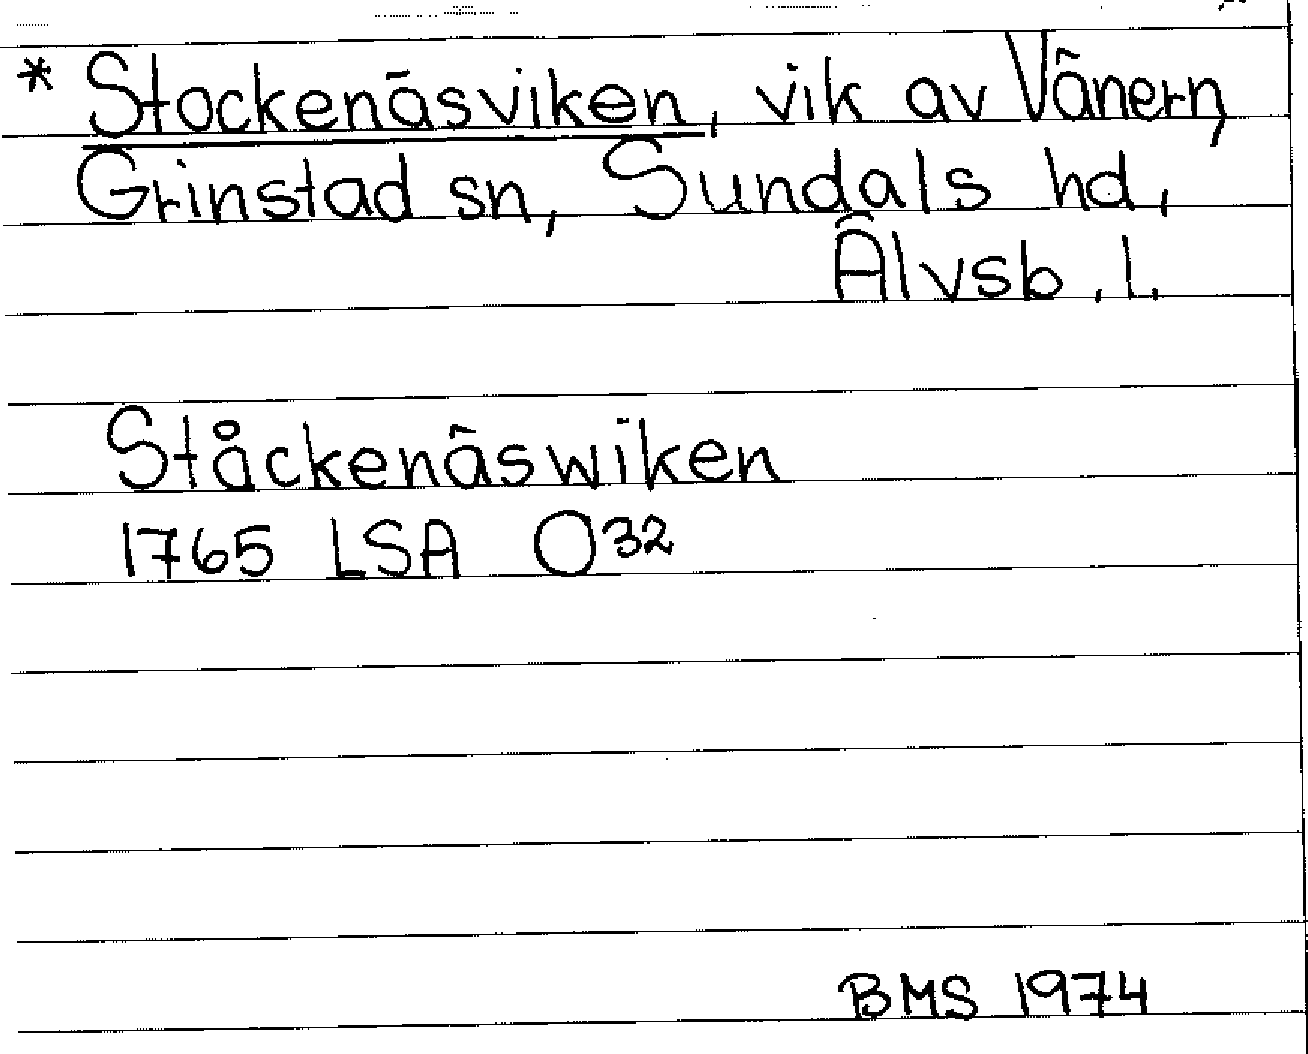 * Stockenäsviken, vik av Vänern,
Grinstad sn, Sundals hd,
Älvsb. l.
Ståckenäswiken
1765 LSA O32
BMS 1974